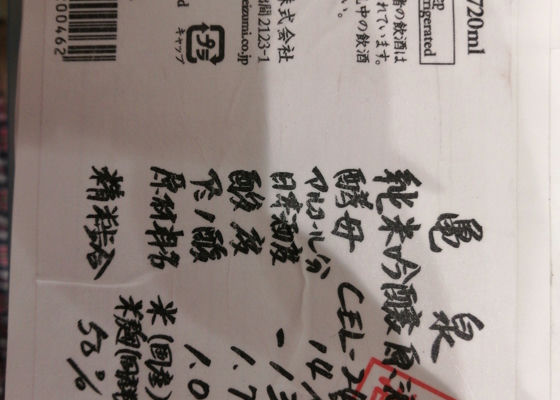 720ml
Refrigerated
者の飲酒は
れています。
中の飲酒
い。
株式会社
間 2123-1
eizumi.co.jp
プラ
キャップ
00462
亀泉
純米吟醸原酒
酵母 CEL-24
アルコール分 14
日本酒度
酸度 1.7
アミノ酸 1.0
原材料名 米(国産)
米麹(国産
精米歩合 50%